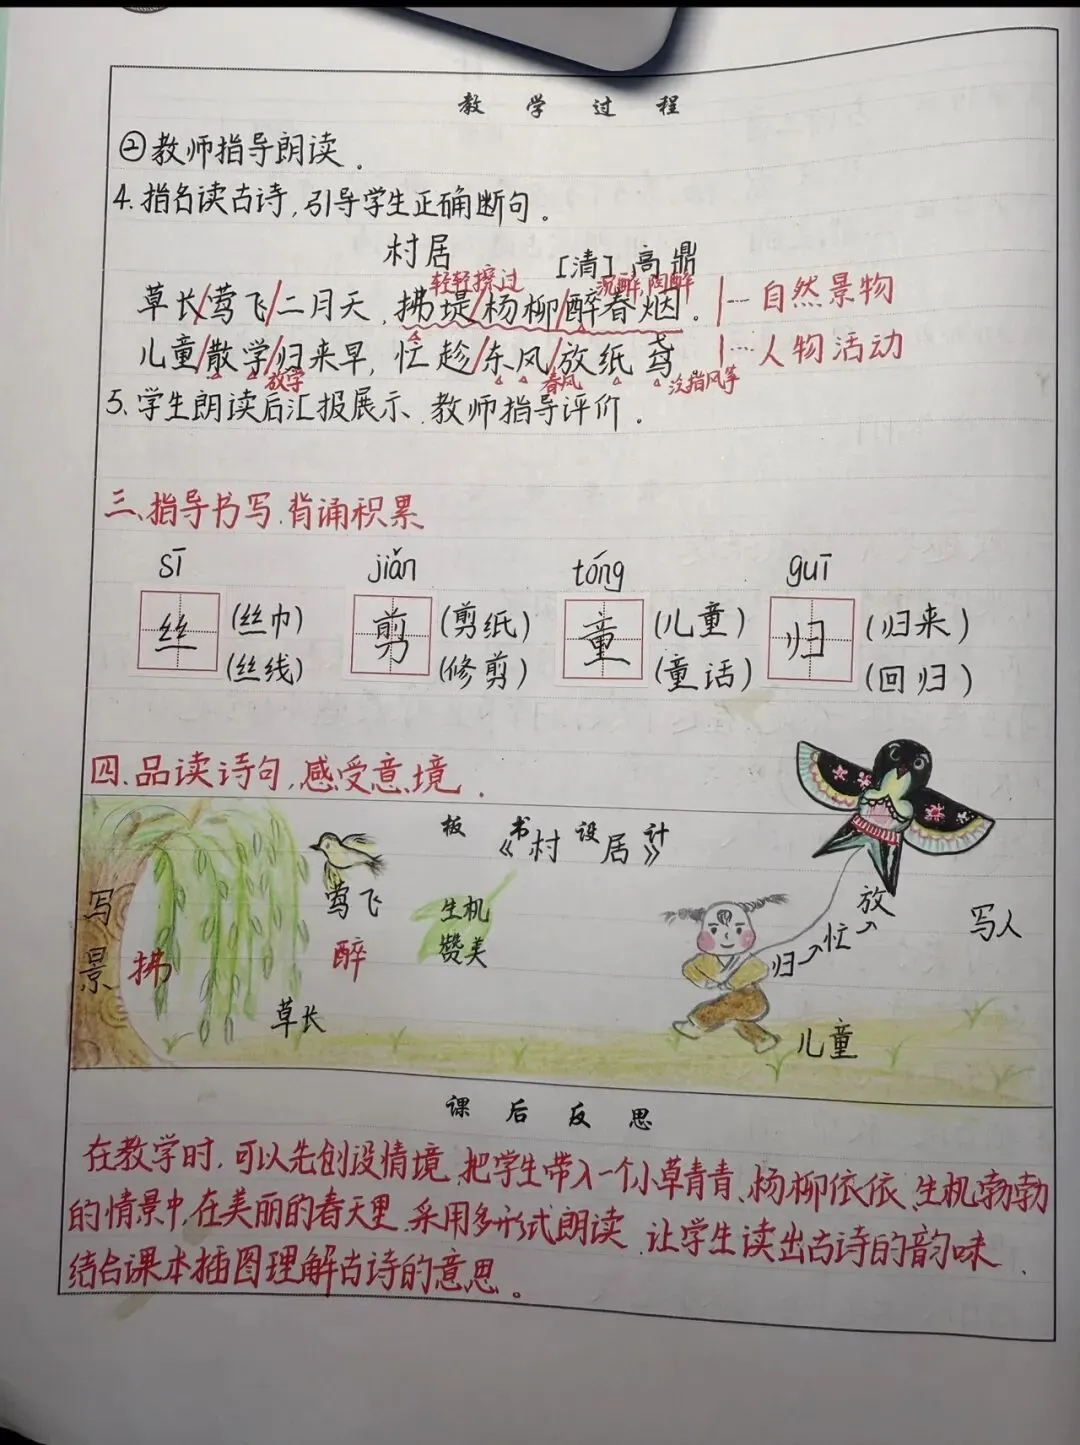 教学过程
②教师指导朗读.
4.指名读古诗,引导学生正确断句。
村居
[清]高鼎
轻轻擦过 沉醉,陶醉
草长/莺飞/二月天,拂堤/杨柳/醉春烟。 自然景物
儿童/散学/归来早,忙趁/东风/放纸鸢 人物活动
放学 春风 泛指风筝
5.学生朗读后汇报展示、教师指导评价.
三、指导书写.背诵积累
sī jiǎn tóng guī
丝 (丝巾) 剪 (剪纸) 童 (儿童) 归 (归来)
(丝线) (修剪) (童话) (回归)
四.品读诗句,感受意境.
板书设计
《村居》
写景
拂
莺飞
醉
草长
生机
赞美
归→忙→放
写人
儿童
课后反思
在教学时,可以先创设情境.把学生带入一个小草青青、杨柳依依、生机勃勃
的情景中,在美丽的春天里.采用多形式朗读.让学生读出古诗的韵味.
结合课本插图理解古诗的意思。